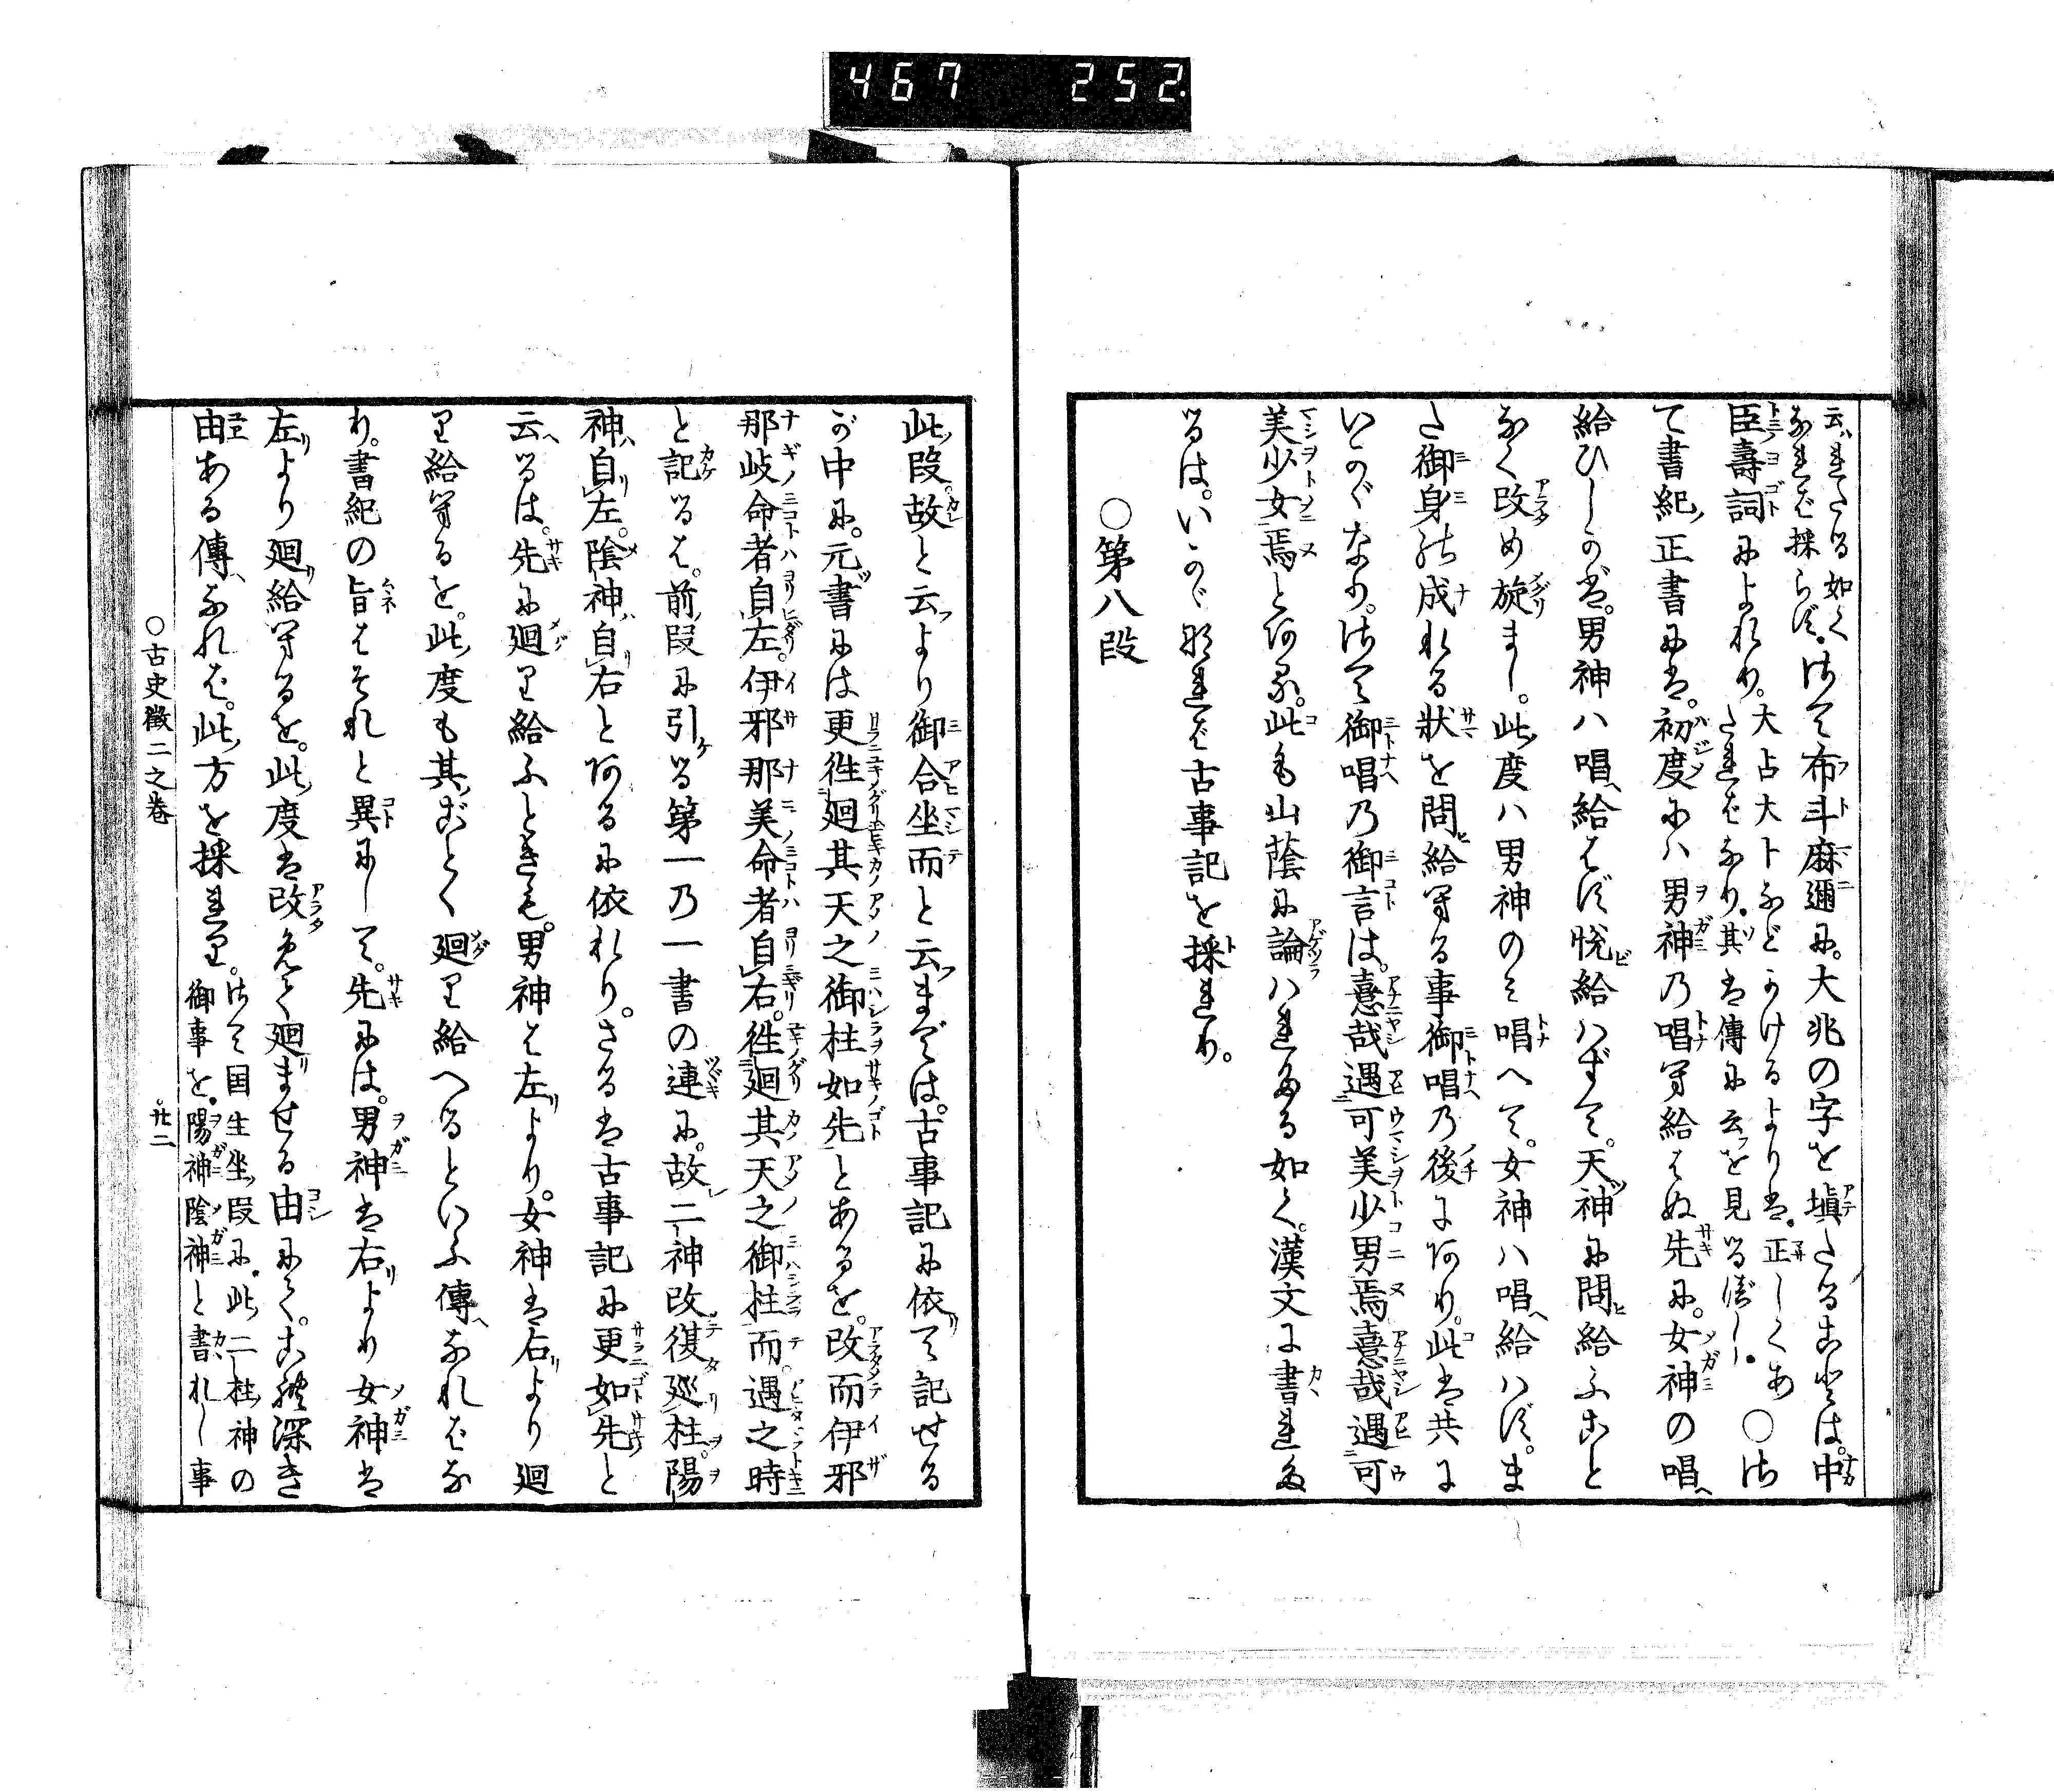 467 252
云はれたる如く
なれば採らず。さて布斗麻邇に。大兆の字を塡たることは。中
臣壽詞によれり。大占大卜などかけるよりは。正しくあ
たればなり。其は傳に云ふを見るべし。○さ
て書紀正書には。初度には男神乃唱へ給はぬ先に。女神の唱へ
給ひしかば。男神ハ唱へ給はず悅び給ハずて。天神に問ひ給ふこと
なく改め旋まし。此度ハ男神のミ唱へて。女神ハ唱へ給ハず。ま
た御身の成れる狀を問ひ給へる事御唱乃後にあり。此は共に
いかゞなり。さて御唱乃御言は。憙哉遇可美少男焉憙哉遇可
美少女焉とある。此も山蔭に論ハれたる如く。漢文に書れた
るは。いかゞなれば古事記を採れり。
○第八段
此段。故と云より御合坐而と云までは。古事記に依て記せる
が中に。元書には更徃廻其天之御柱如先とあるを。改而伊邪
那岐命者自左。伊邪那美命者自右。徃廻其天之御柱而。遇之時
と記るは。前段に引る第一乃一書の連に。故二神改復廵柱。陽
神自左。陰神自右とあるに依れり。さるは古事記に更如先と
云へるは。先に廻り給ふときも。男神は左より。女神は右より廻
り給へるを。此度も其ごとく廻り給へるといふ傳へなればな
り。書紀の旨はそれと異にして。先には。男神は右より女神は
左より廻り給へるを。此度は改めて廻りませる由にて。こは深き
由ある傳へなれば。此方を採れり。さて国生坐段に。此二柱神の
御事を。陽神陰神と書れし事
○古史徵二之卷 廿二